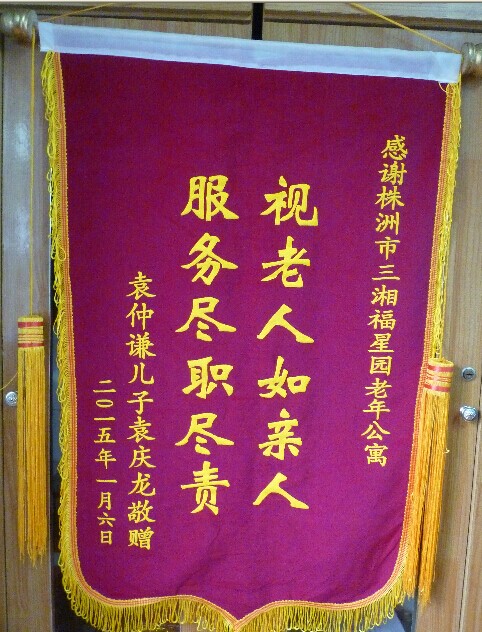 感谢株洲市三湘福星园老年公寓
视老人如亲人
服务尽职尽责
袁仲谦儿子袁庆龙敬赠
二〇一五年一月六日